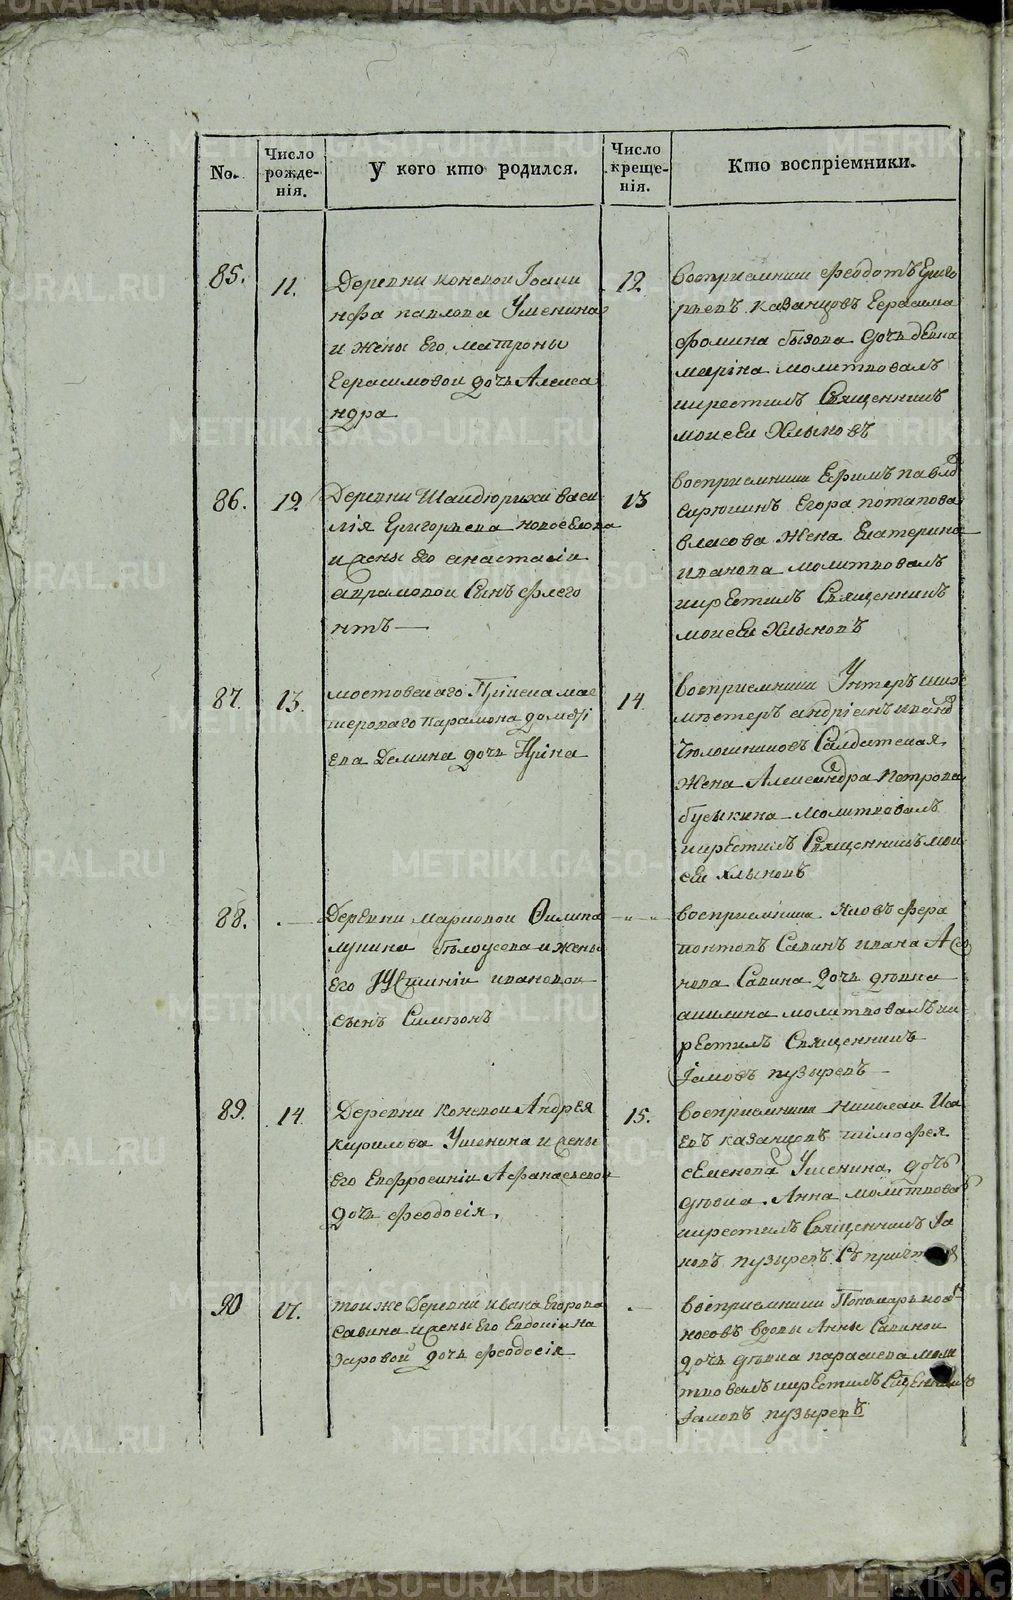 No.
Число рожде-нія.
У кого кто родился.
Число креще-нія.
Кто воспріемники.
85.
11.
Деревни конєвои Іоаки
нфа павлова Ушенина
и жены Его матроны
Герасимовои дочь Алекса
ндра
12.
восприемники феодотъ Григо
рьевъ казанцовъ Герасима
фомина бызова дочь девка
маріна молитвовалъ
икрестилъ Священникъ
моисеи Хлыновъ
86.
12
Деревни Шайдюрихи васи
лія Григорьева новоселова
и жены Его анастасіи
аврамовои Сынъ флего
нтъ
13
восприемники Ефимъ павло
Егора потапова
власова Жена Екатерина
иванова молитвовалъ
икрЕстилъ Священникъ
моисеи Хлыновъ
87.
13.
мостовскаго Пріиска мас
тероваго парамона дометі
ева Демина дочь Иріна
14
восприемники Унтеръ ших
мѣстеръ андріанъ ивано
Салдатская
Жена Александра Петрова
бусыкина молитвовалъ
икрЕстилъ Священникъ мои
сеи хлыновъ
88.
Деревни марковои Филипа
лукина бѣлоусова и жены
Его Устиніи ивановои
сынъ Симѣонъ
восприемники Яковъ фера
понтовъ Савинъ ивана
нова Савина дочь дѣвка
акилина молитвовалъ ик
рЕстилъ Священникъ
Іаковъ пузыревъ
89.
14
Деревни конєвои Андрея
кирилова Ушенина и жены
Его Евфросиніи Афанасьевои
дочь феодосія.
15.
восприемники Николаи Иса
евъ казанцовъ тімофея
сЕменова Ушенина дочь
дѣвка Анна молитвова
икрестилъ Священникъ Іа
ковъ пузыревъ Съ причтомъ
90
17.
тоиже Деревни ивана Егорова
Савина и жены Его Евдокіи на
заровои дочь феодосія
восприемники Пономарь
носовъ вдовы Анны Савинои
дочь дѣвка параскева моли
твовалъ икрЕстилъ Священникъ
Іаковъ пузыревъ
METRIKI.GASO-URAL.RU